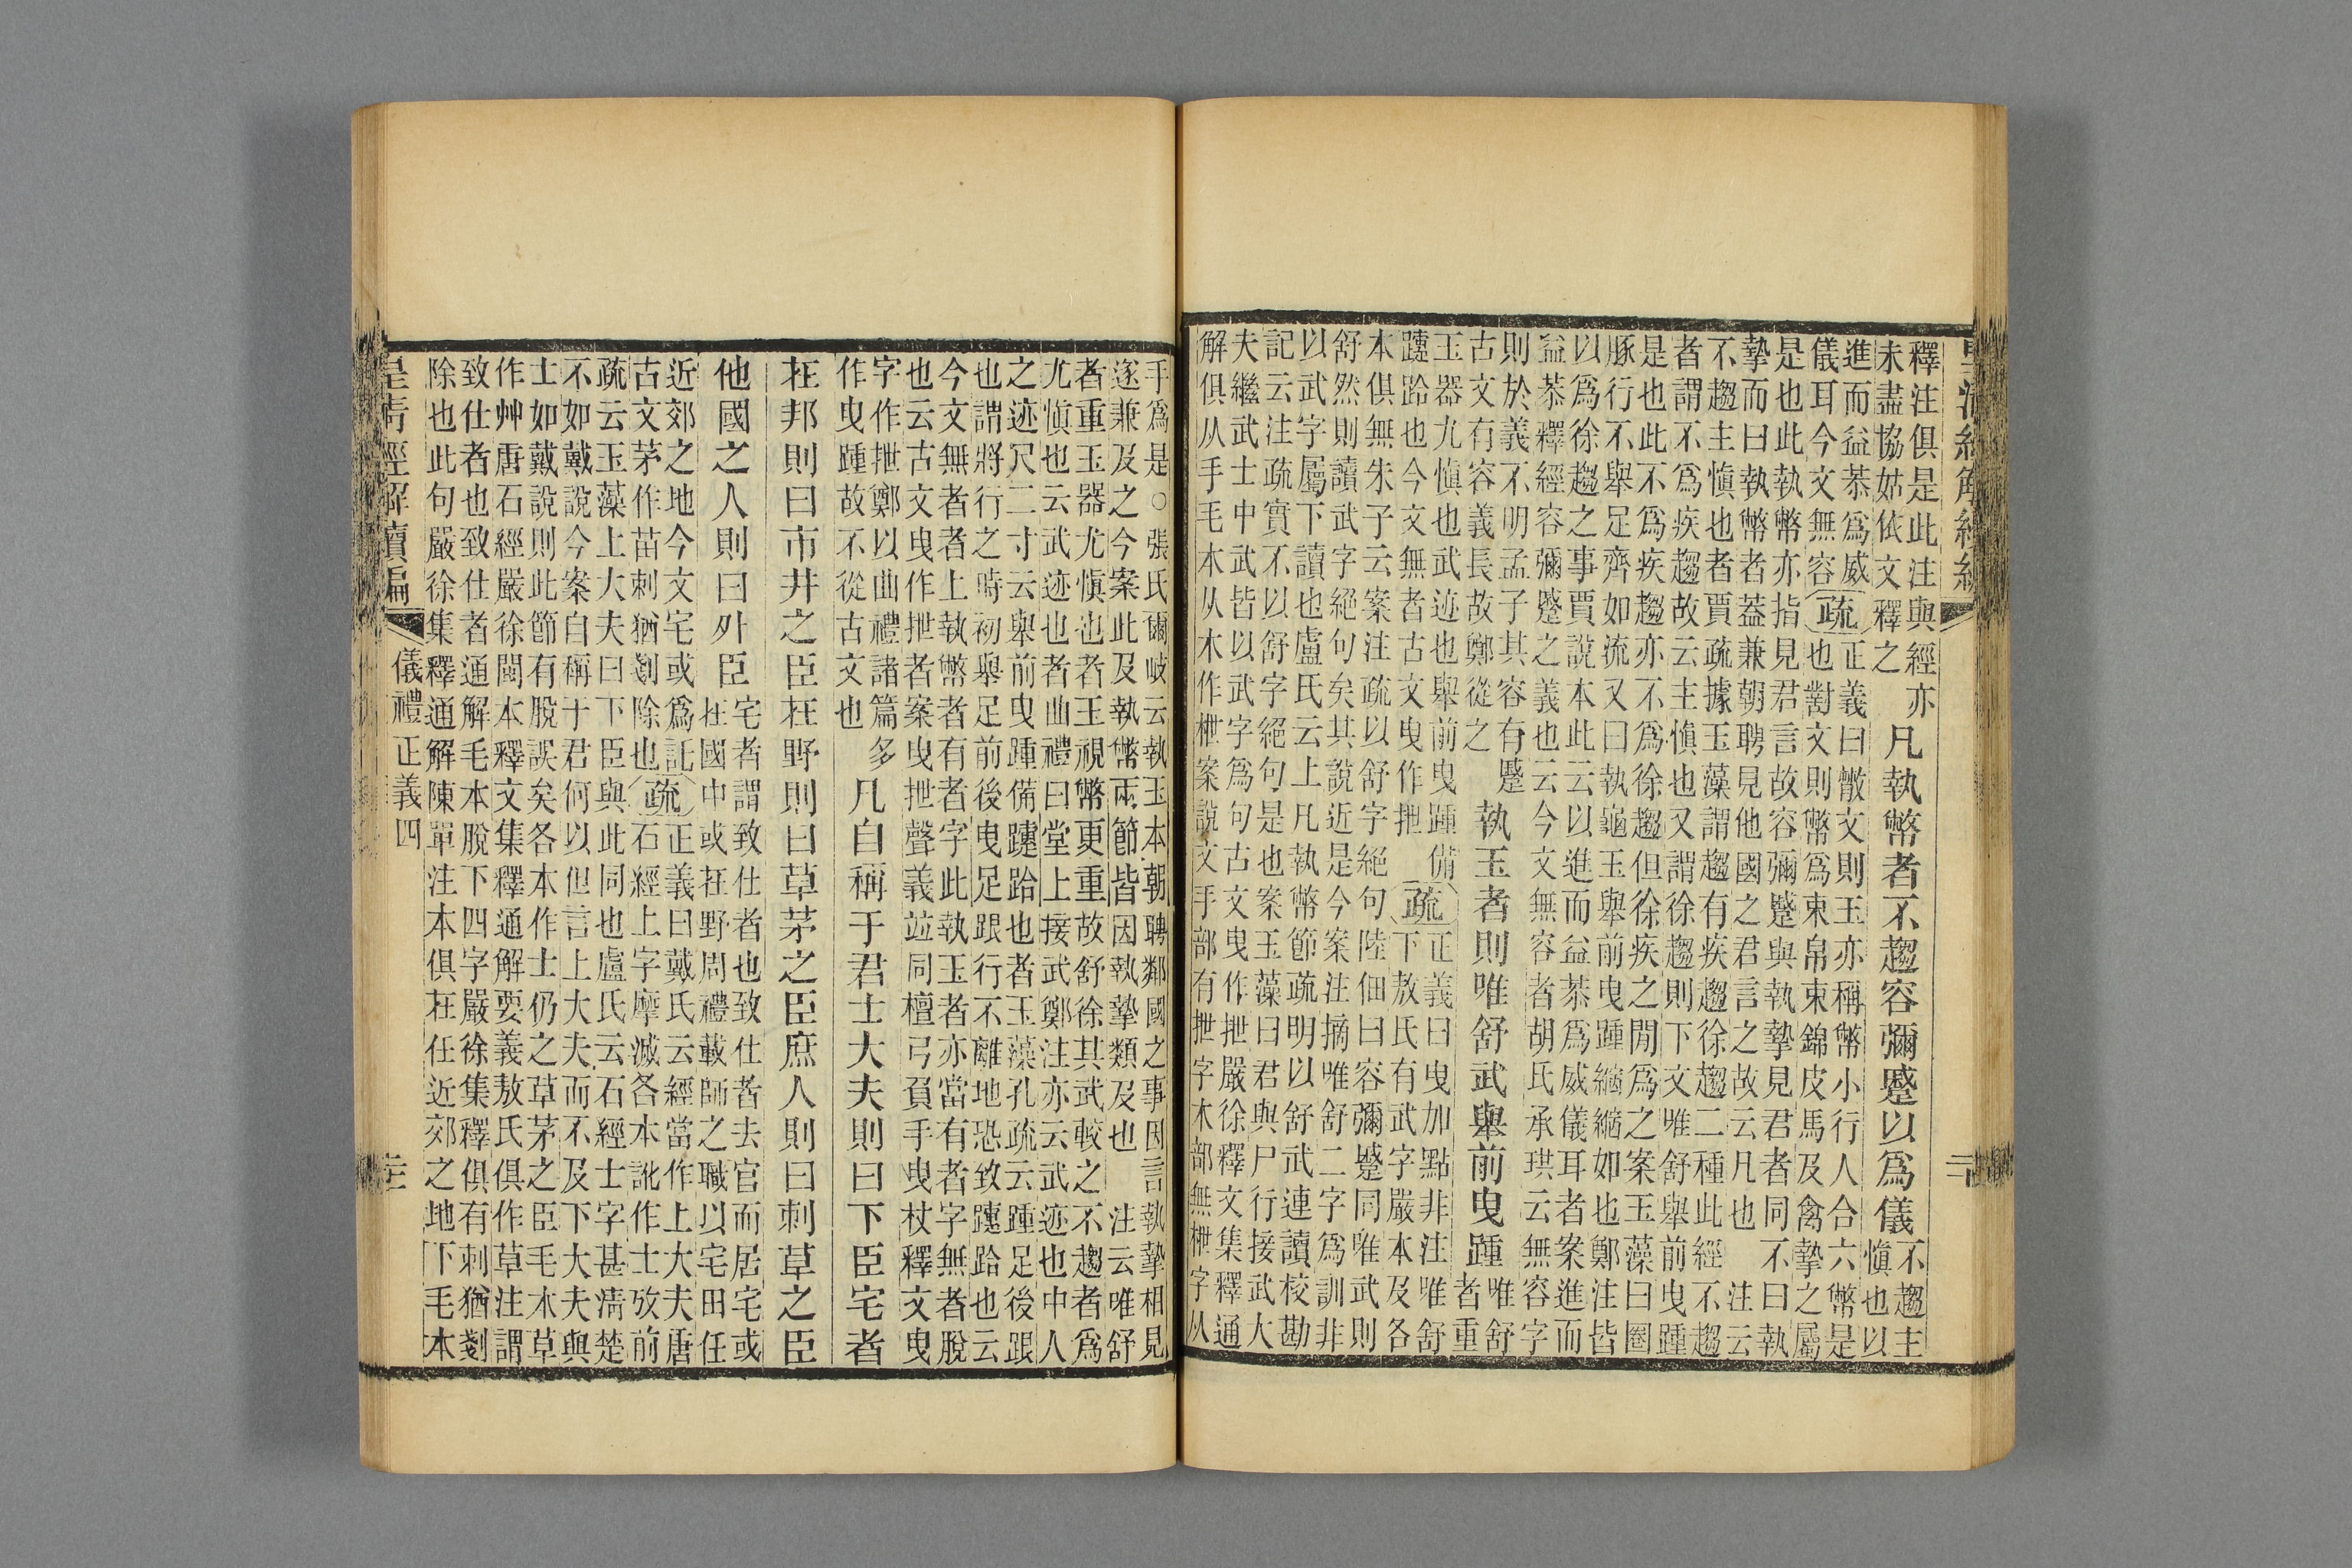 釋注俱是此注與經亦
未盡協姑依文釋之
凡執幣者不趨容彌蹙以爲儀
不趨主
慎也以
進而益恭爲威
儀耳今文無容
疏
正義曰散文則玉亦稱幣小行人合六幣是
也對文則幣爲束帛束錦皮馬及禽摯之屬
是也此執幣亦指見君言故容彌蹙與執摯見君者同不曰執
摯而曰執幣者蓋兼朝聘見他國之君言之故云凡也 注云
不趨主慎也者賈疏據玉藻謂趨有疾趨徐趨二種此經不趨
者謂不爲疾趨故云主慎也又謂徐趨則下文唯舒舉前曳踵
是也此不爲疾趨亦不爲徐趨但徐疾之閒爲之案玉藻曰圈
豚行不舉足齊如流又曰執龜玉舉前曳踵縮縮如也鄭注皆
以爲徐趨之事賈說本此云以進而益恭爲威儀耳者案進而
益恭釋經容彌蹙之義也云今文無容者胡氏承珙云無容字
則於義不明孟子其容有蹙
古文有容義長故鄭從之
執玉者則唯舒武舉前曳踵
唯舒
者重
玉器尤慎也武迹也舉前曳踵備
跲也今文無者古文曳作抴
疏
正義曰曳加點非注唯舒
下敖氏有武字嚴本及各
本俱無朱子云案注疏以舒字絕句陸佃曰容彌蹙同唯武則
舒然則讀武字絕句矣其說近是今案注摘唯舒二字爲訓非
以武字屬下讀也盧氏云上凡執幣節疏明以舒武連讀校勘
記云注疏實不以舒字絕句是也案玉藻曰君與尸行接武大
夫繼武士中武皆以武字爲句古文曳作抴嚴徐釋文集釋通
解俱从手毛本从木作枻案說文手部有抴字木部無枻字从
手爲是○張氏爾岐云執玉本朝聘鄰國之事因言執摯相見
遂兼及之今案此及執幣兩節皆因執摯類及也 注云唯舒
者重玉器尤慎也者玉視幣更重故舒徐其武較之不趨者爲
尤慎也云武迹也者曲禮曰堂上接武鄭注亦云武迹也中人
之迹尺二寸云舉前曳踵備跲也者玉藻孔疏云踵足後跟
也謂將行之時初舉足前後曳足跟行不離地恐致跲也云
今文無者者上執幣者有者字此執玉者亦當有者字無者脫
也云古文曳作抴者案曳抴聲義竝同檀弓負手曳杖釋文曳
字作抴鄭以曲禮諸篇多
作曳踵故不從古文也
凡自稱于君士大夫則曰下臣宅者
在邦則曰市井之臣在野則曰草茅之臣庶人則曰刺草之臣
他國之人則曰外臣
宅者謂致仕者也致仕者去官而居宅或
在國中或在野周禮載師之職以宅田任
近郊之地今文宅或爲託
古文茅作苗刺猶剗除也
疏
正義曰戴氏云經當作上大夫唐
石經上字摩滅各本訛作士攷前
疏云玉藻上大夫曰下臣與此同也盧氏云石經士字甚清楚
不如戴說今案自稱于君何以但言上大夫而不及下大夫與
士如戴說則此節有脫誤矣各本作士仍之草茅之臣毛本草
作艸唐石經嚴徐閩本釋文集釋通解要義敖氏俱作草注謂
致仕者也致仕者通解毛本脫下四字嚴徐集釋俱有刺猶剗
除也此句嚴徐集釋通解陳單注本俱在任近郊之地下毛本
皇清經解續編
儀禮正義四